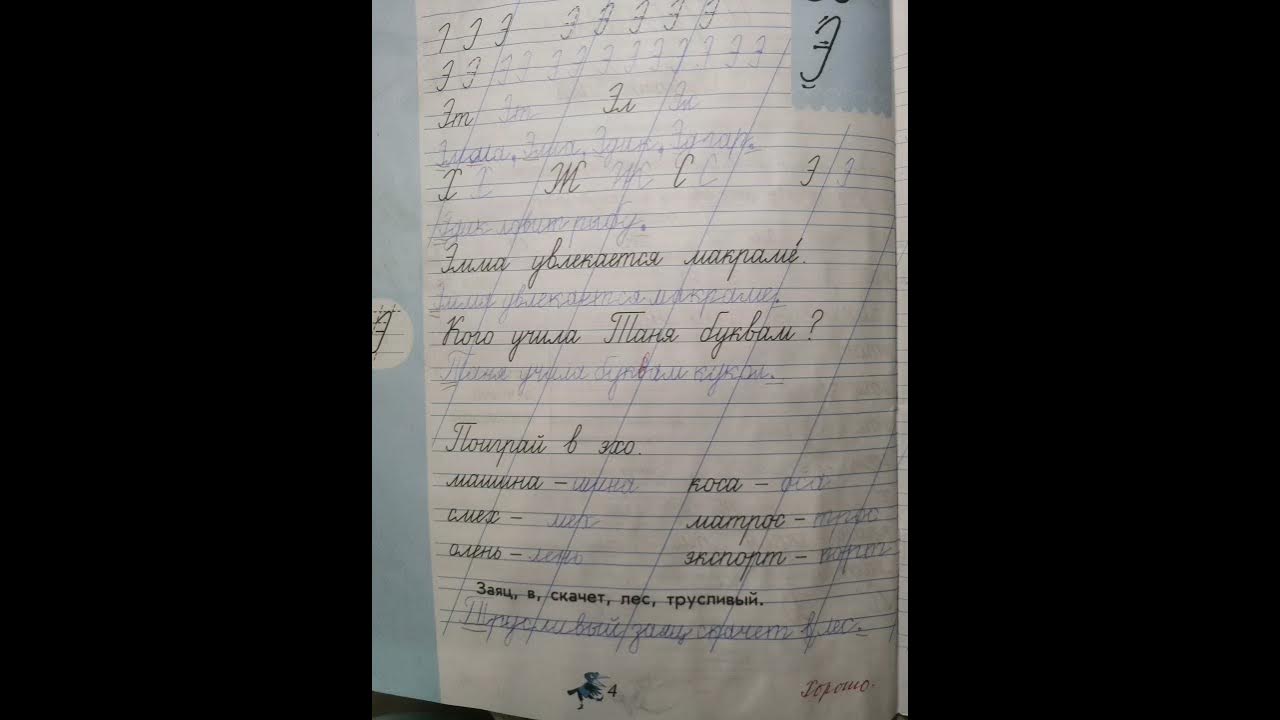 Э Э Э Э Э Э Э
Э Э Э Э Э Э Э Э Э Э Э Э Э
Эт Эт Эл Эл
Эмма, Элла, Эдик, Эдгар.
Х Х Ж Ж С С Э Э
Эдик ловит рыбу.
Эмма увлекается макраме́.
Эмма увлекается макраме.
Кого учила Таня буквам?
Таня учила буквам кукол.
Поиграй в эхо.
машина – шина коса – оса
смех – мех матрос – трос
олень – лень экспорт – порт
Заяц, в, скачет, лес, трусливый.
Трусливый заяц скачет в лес.
4
Хорошо.